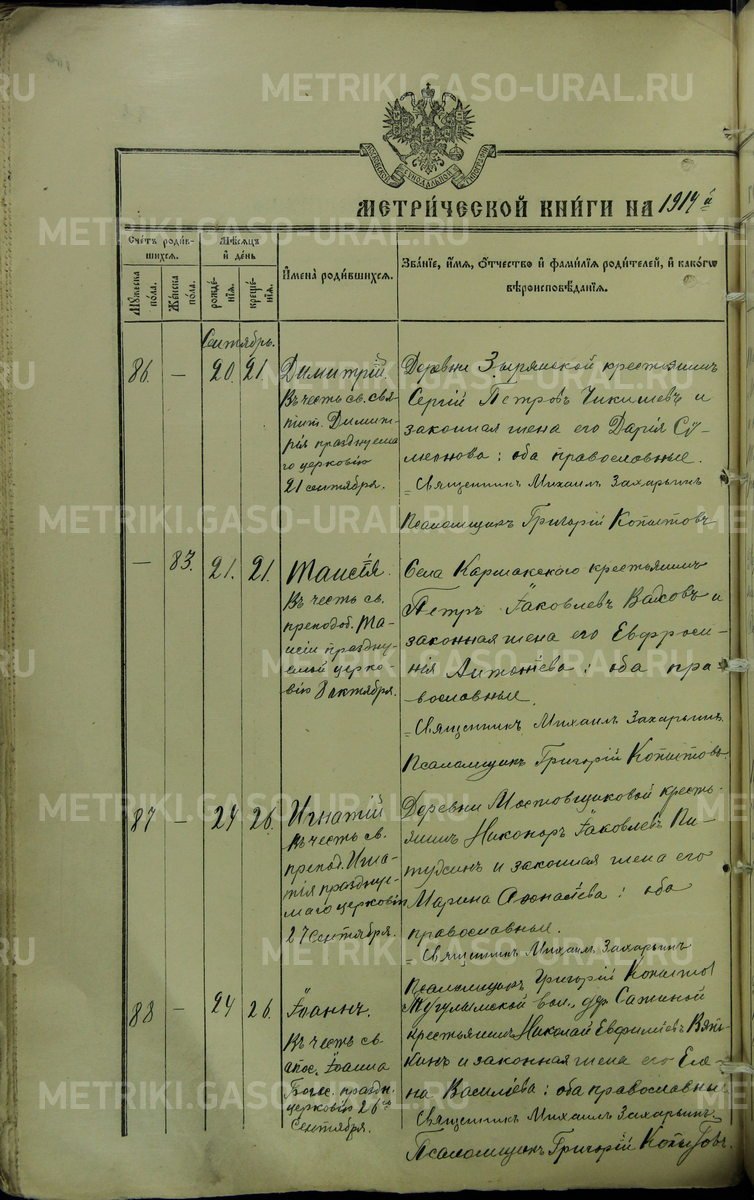 METRIKI.GASO-URAL.RU
МОСКОВСКОЙ СѴНОДАЛЬНОЙ ТИПОГРАФІИ
МЕТРИ́ЧЕСКОЙ КНИ́ГИ НА 1914 й
Сче́тъ роди́вшихсѧ.
Мꙋжеска по́ла.
Же́нска по́ла.
Мѣ́сѧцъ и҆ де́нь
рожде́нїѧ.
креще́нїѧ.
И҆мена̀ роди́вшихсѧ.
Зва́нїе, и҆́мѧ, ѻ҆́тчество и҆ фами́лїѧ роди́телей, и҆ како́гѡ вѣроисповѣ́данїѧ.
Сентябрь.
86. — 20. 21. Димитрій.
Въ честь св. свя-
тит. Димит-
рія празднуема-
го церковію
21 сентября.
Деревни Зырянской крестьянинъ
Сергій Петровъ Чикишевъ и
законная жена его Дарія Су-
меонова: оба православные.
Священникъ Михаилъ Захарьинъ
Псаломщикъ Григорій Копытовъ
— 83. 21. 21. Таисія.
Въ честь св.
преподоб. Та-
исіи празdну-
емой церко-
вію 8 октября.
Села Кармакскаго крестьянинъ
Петръ Іаковлевъ Вахов и
законная жена его Евфроси-
нія Антоніева: оба пра-
вославные.
Священникъ Михаилъ Захарьинъ.
Псаломщикъ Григорій Копытовъ
87 — 24 26. Игнатій
Въ честь св.
препод. Игна-
тія празднуе-
маго церковію
27 сентября.
Деревни Мостовщиковой кресть-
янинъ Никоноръ Іаковлевъ Пи-
тухинъ и законная жена его
Марина : оба
православные.
Священникъ Михаилъ Захарьинъ
Псаломщикъ Григорій Копытов
88 — 24 26. Іоаннъ.
Въ честь св.
апос. Іоанна
Богос. праздн.
церковію 26го
сентября.
Тугулымской вол., дер. Сажиной
крестьянинъ Николай Евфиміевъ Вят-
кинъ и законная жена его Еле-
на Василіева: оба православные
Священникъ Михаилъ Захарьинъ.
Псаломщикъ Григорій Копытовъ.